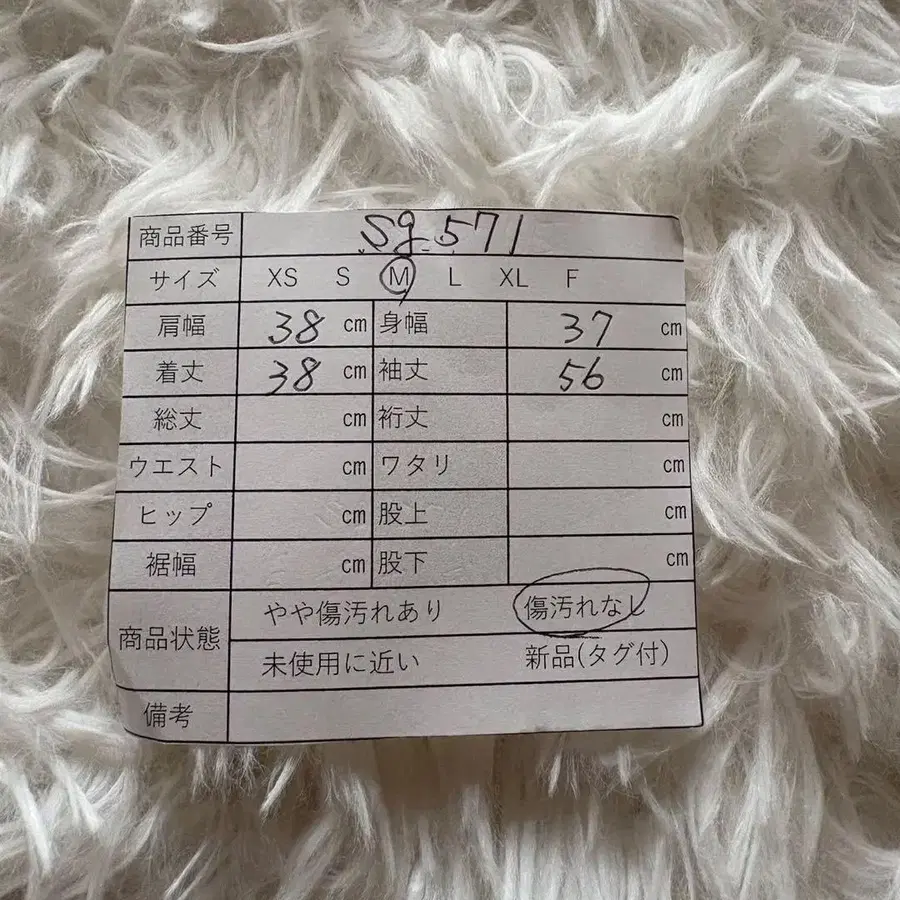 商品番号 Sg-571
サイズ XS S M L XL F
肩幅 38 cm 身幅 37 cm
着丈 38 cm 袖丈 56 cm
総丈 cm 裄丈 cm
ウエスト cm ワタリ cm
ヒップ cm 股上 cm
裾幅 cm 股下 cm
商品状態 やや傷汚れあり 傷汚れなし
未使用に近い 新品(タグ付)
備考